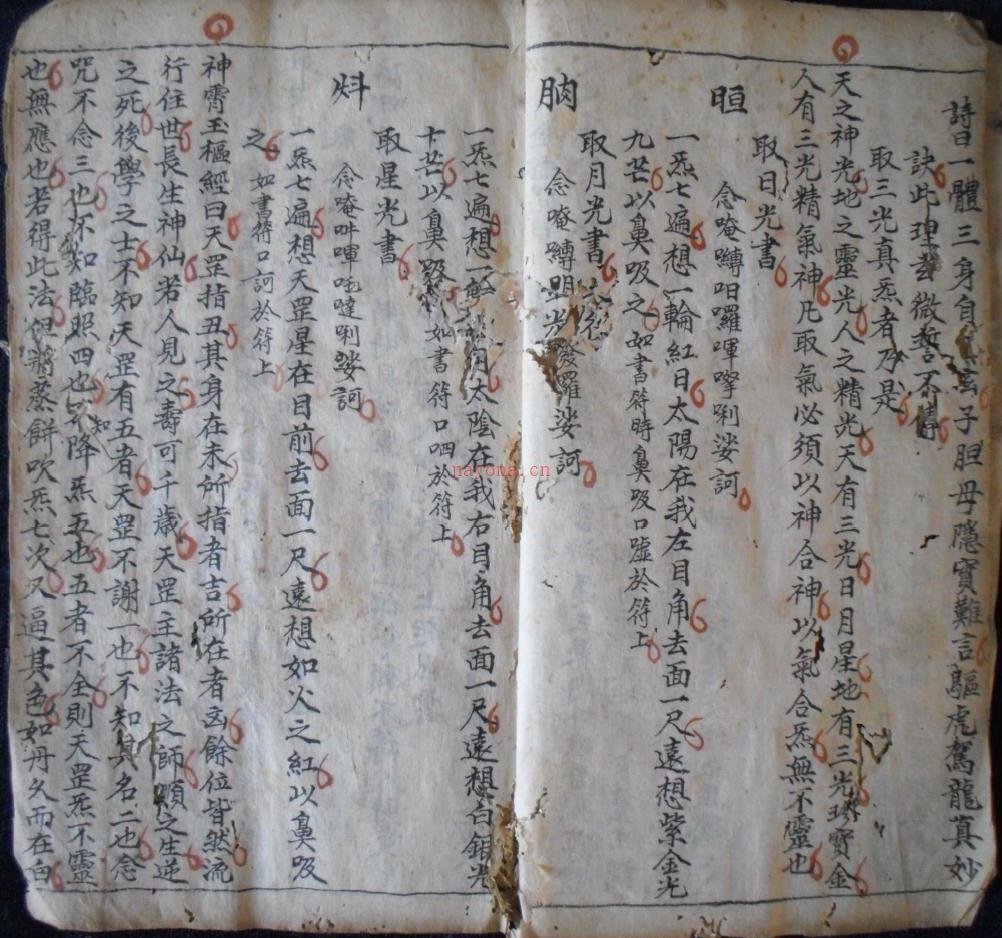 詩曰一體三身自玄子胆母隱寳難言驅虎駕龍真妙
訣此理玄微誓不傳
取三光真炁者乃是
天之神光地之靈光人之精光天有三光日月星地有三光珍寳金
人有三光精氣神凡取氣必須以神合神以氣合炁無不靈也
取日光書
念唵囀呬囉㗲唎娑訶
一炁七遍想一輪紅日太陽在我左目角去面一尺遠想紫金光
九芒以鼻吸之如書符時鼻吸口噓於符上
取月光書
念唵囀光發羅娑訶
一炁七遍想月太陰在我右目角去面一尺遠想白銀光
十芒以鼻吸如書符口呬於符上
取星光書
念唵吽㗲唎娑訶
一炁七遍想天罡星在目前去面一尺遠想如火之紅以鼻吸
之如書符口訶於符上
神霄玉樞經曰天罡指丑其身在未所指者吉所在者凶餘位皆然流
行住世長生神仙若人見之壽可千歲天罡主諸法之師順之生逆
之死後學之士不知天罡有五者天罡不謝一也不知其名二也念
咒不念三也不知臨照四也不知降炁五也五者不全則天罡炁不靈
也無應也若得此法但將蒸餅吹炁七次又逼其色如丹久而在白
nayona.cn